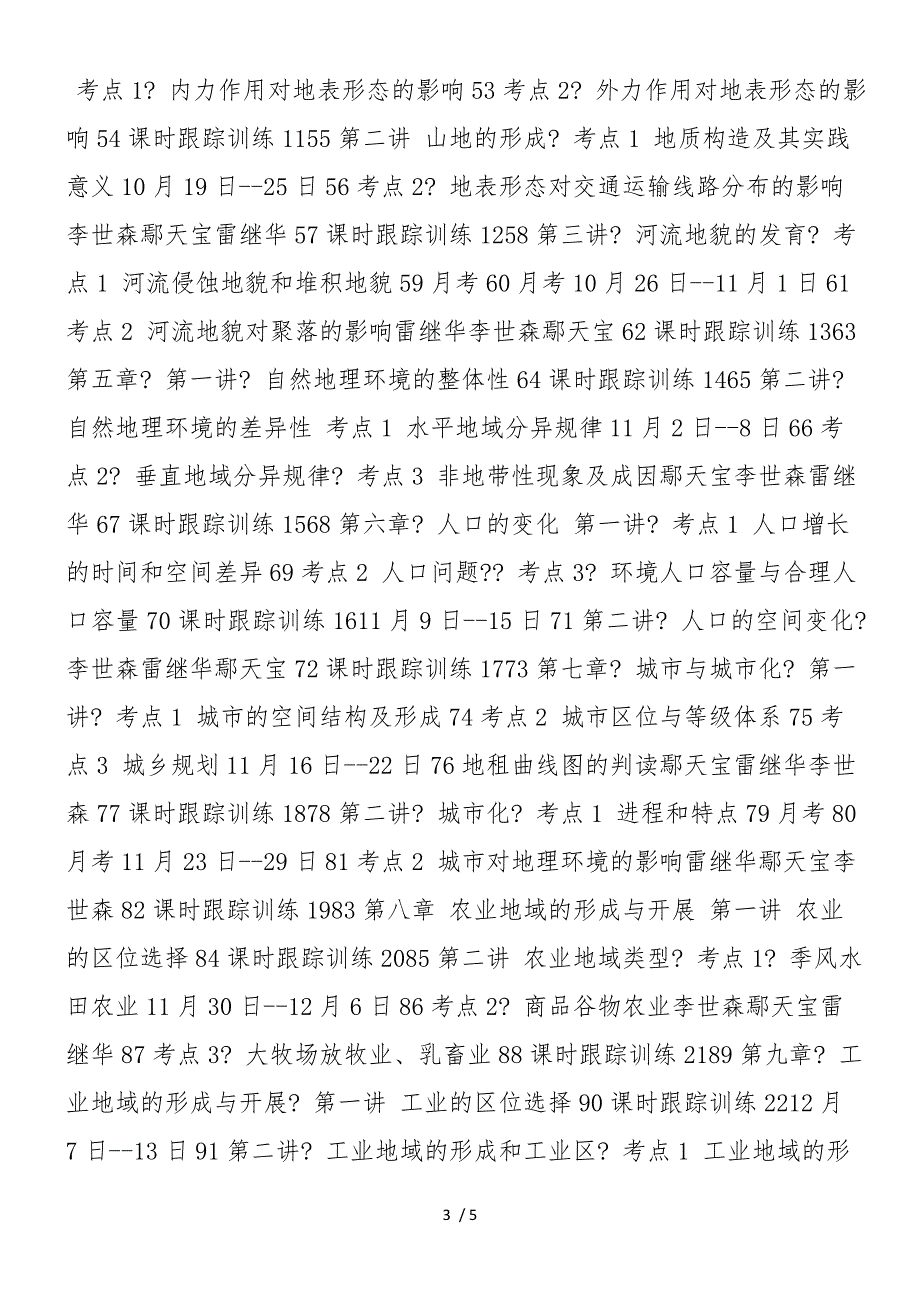 考点1? 内力作用对地表形态的影响53考点2? 外力作用对地表形态的影
响54课时跟踪训练1155第二讲 山地的形成? 考点1 地质构造及其实践
意义10月19日--25日56考点2? 地表形态对交通运输线路分布的影响
李世森鄢天宝雷继华57课时跟踪训练1258第三讲? 河流地貌的发育? 考
点1 河流侵蚀地貌和堆积地貌59月考60月考10月26日--11月1日61
考点2 河流地貌对聚落的影响雷继华李世森鄢天宝62课时跟踪训练1363
第五章? 第一讲? 自然地理环境的整体性64课时跟踪训练1465第二讲?
自然地理环境的差异性 考点1 水平地域分异规律11月2日--8日66考
点2? 垂直地域分异规律? 考点3 非地带性现象及成因鄢天宝李世森雷继
华67课时跟踪训练1568第六章? 人口的变化 第一讲? 考点1 人口增长
的时间和空间差异69考点2 人口问题?? 考点3? 环境人口容量与合理人
口容量70课时跟踪训练1611月9日--15日71第二讲? 人口的空间变化?
李世森雷继华鄢天宝72课时跟踪训练1773第七章? 城市与城市化? 第一
讲? 考点1 城市的空间结构及形成74考点2 城市区位与等级体系75考
点3 城乡规划11月16日--22日76地租曲线图的判读鄢天宝雷继华李世
森77课时跟踪训练1878第二讲? 城市化? 考点1 进程和特点79月考80
月考11月23日--29日81考点2 城市对地理环境的影响雷继华鄢天宝李
世森82课时跟踪训练1983第八章 农业地域的形成与开展 第一讲 农业
的区位选择84课时跟踪训练2085第二讲 农业地域类型? 考点1? 季风水
田农业11月30日--12月6日86考点2? 商品谷物农业李世森鄢天宝雷
继华87考点3? 大牧场放牧业、乳畜业88课时跟踪训练2189第九章? 工
业地域的形成与开展? 第一讲 工业的区位选择90课时跟踪训练2212月
7日--13日91第二讲? 工业地域的形成和工业区? 考点1 工业地域的形
3 / 5